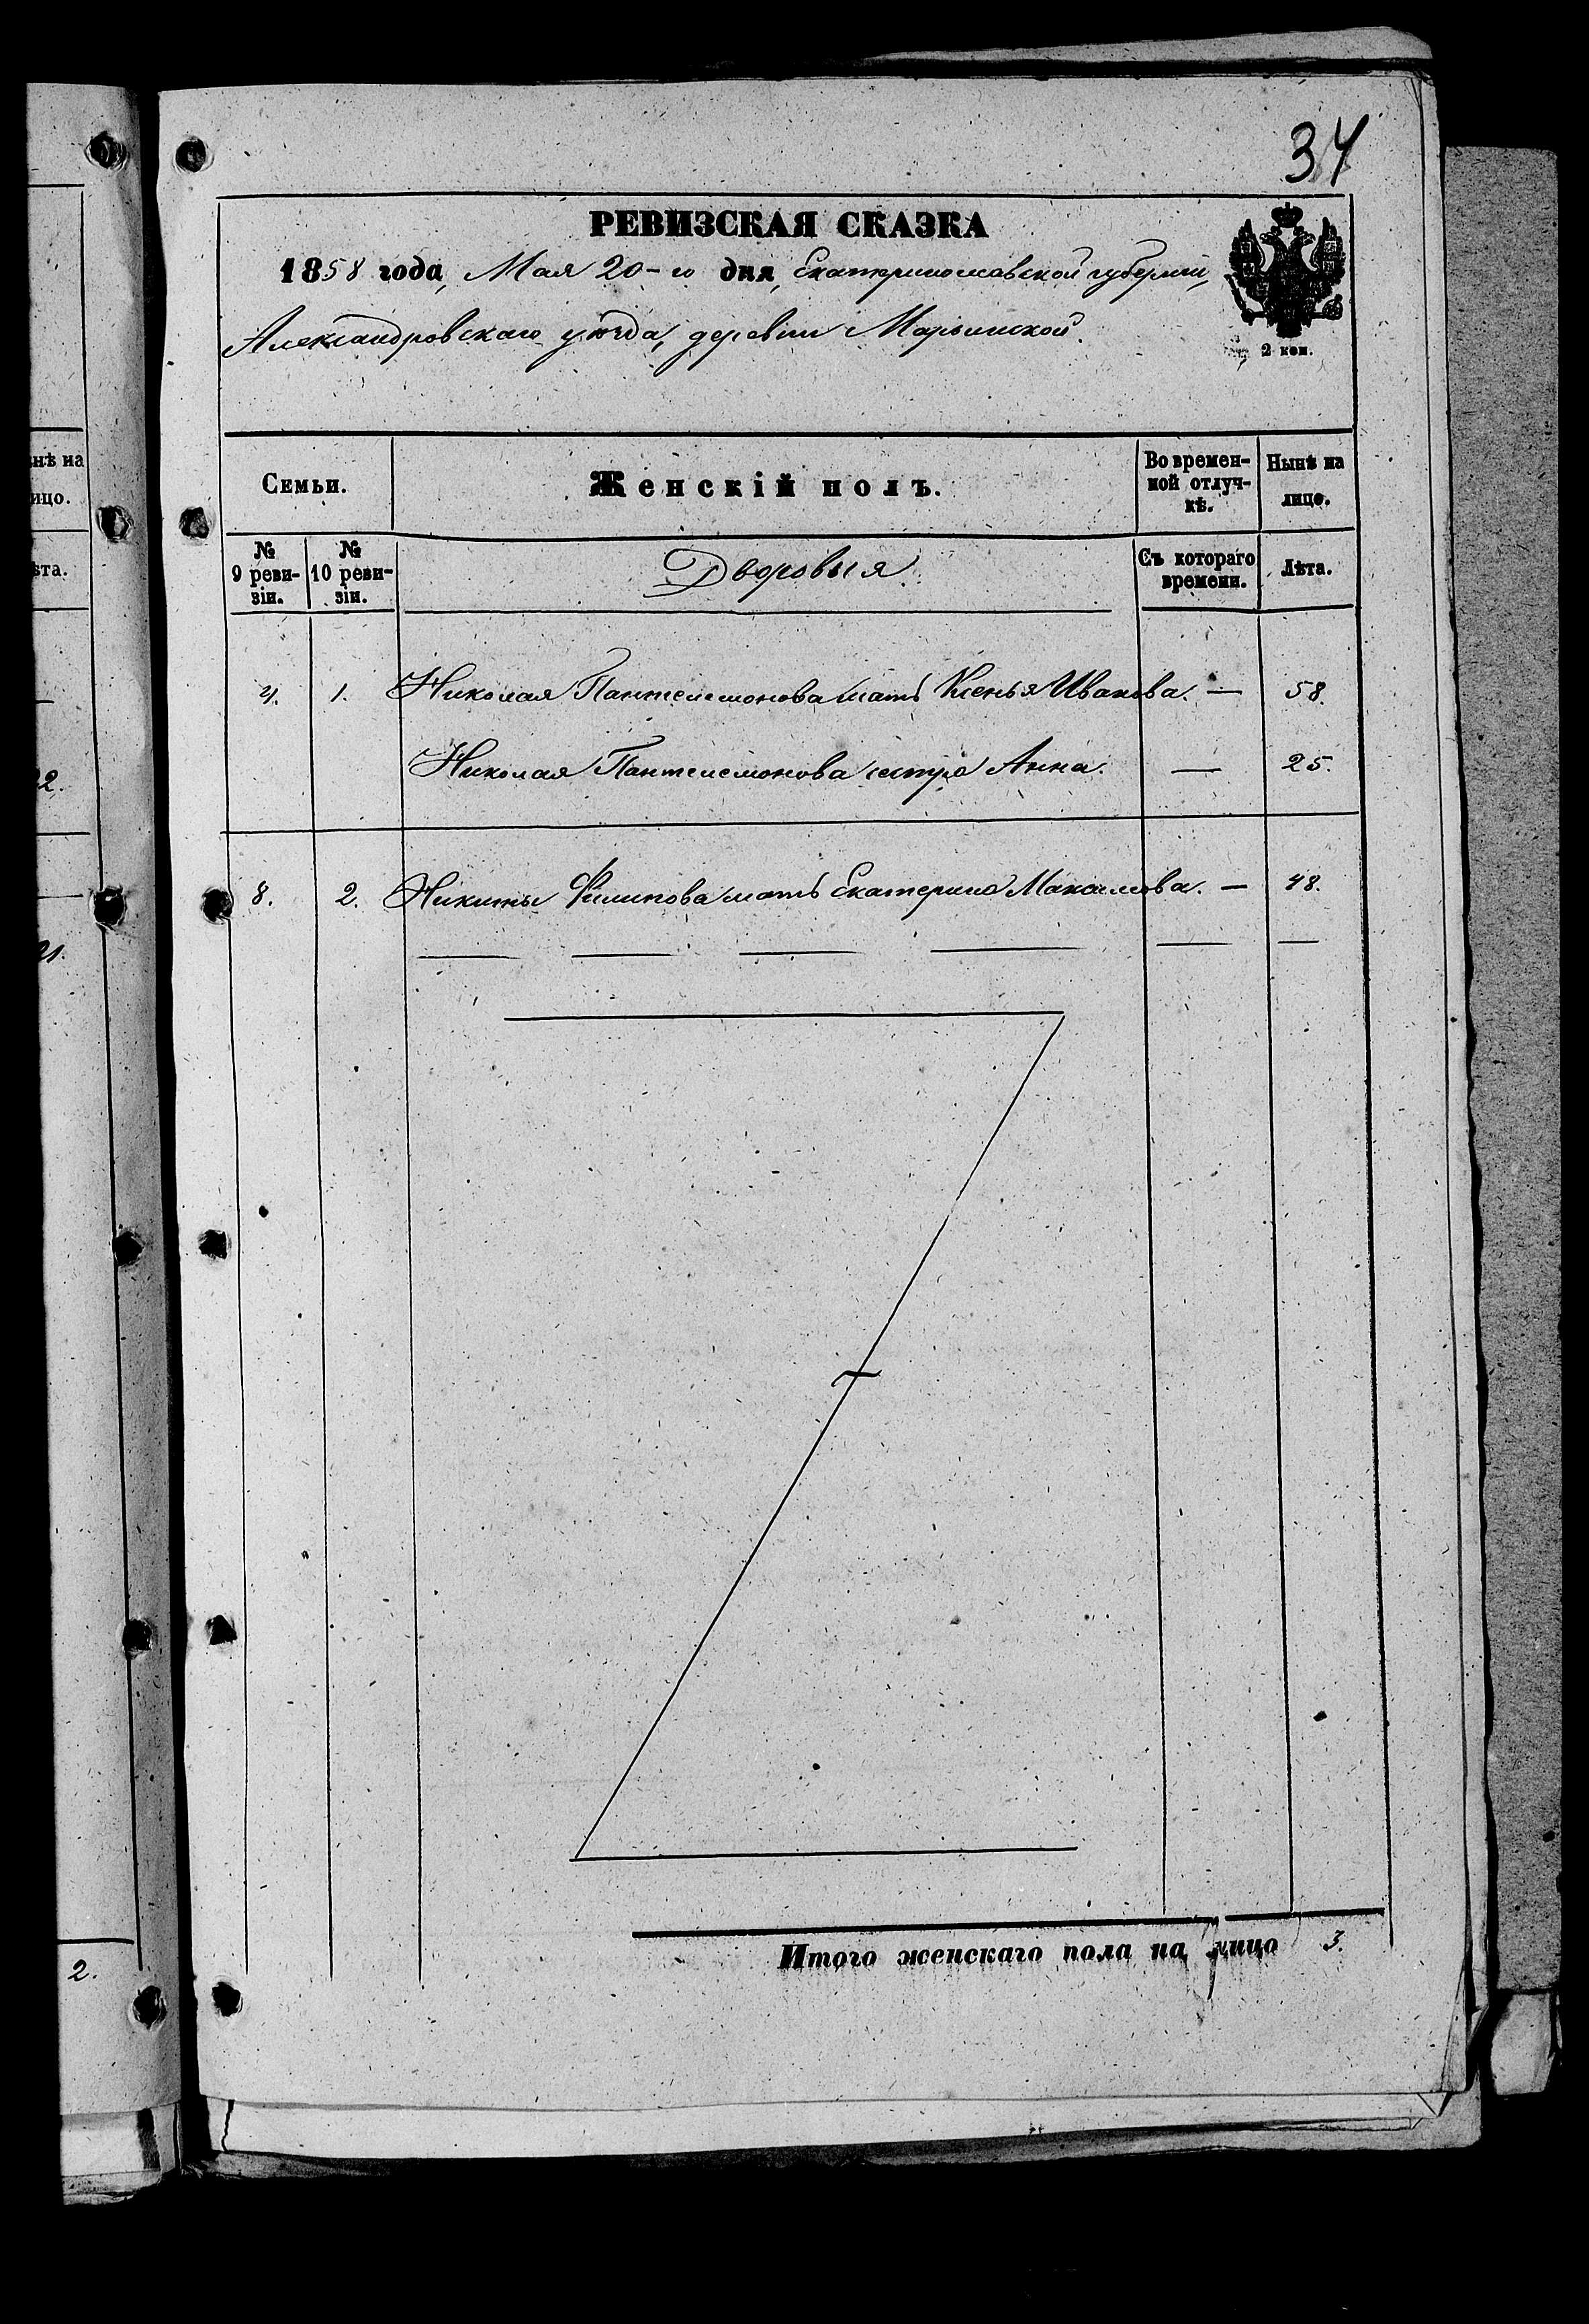 34
РЕВИЗСКАЯ СКАЗКА
1858 года, Мая 20-го дня, Екатеринославской губерніи,
Александровскаго уѣзда, деревни Марьинской.
2 коп.
Семьи.
Женскій полъ.
Во времен-
ной отлуч-
кѣ.
Нынѣ на
лицо.
№
9 реви-
зіи.
№
10 реви-
зіи.
Дворовыя
Съ котораго
времени.
Лѣта.
4. 1. Николая Пантелемонова мать Ксенья Иванова. — 58.
Николая Пантелемонова сестра Анна. — 25.
8. 2. Никиты Филипова мать Екатерина Максимова. — 48.
Итого женскаго пола на лицо 3.
нѣ на
ицо.
ѣта.
22.
21.
2.